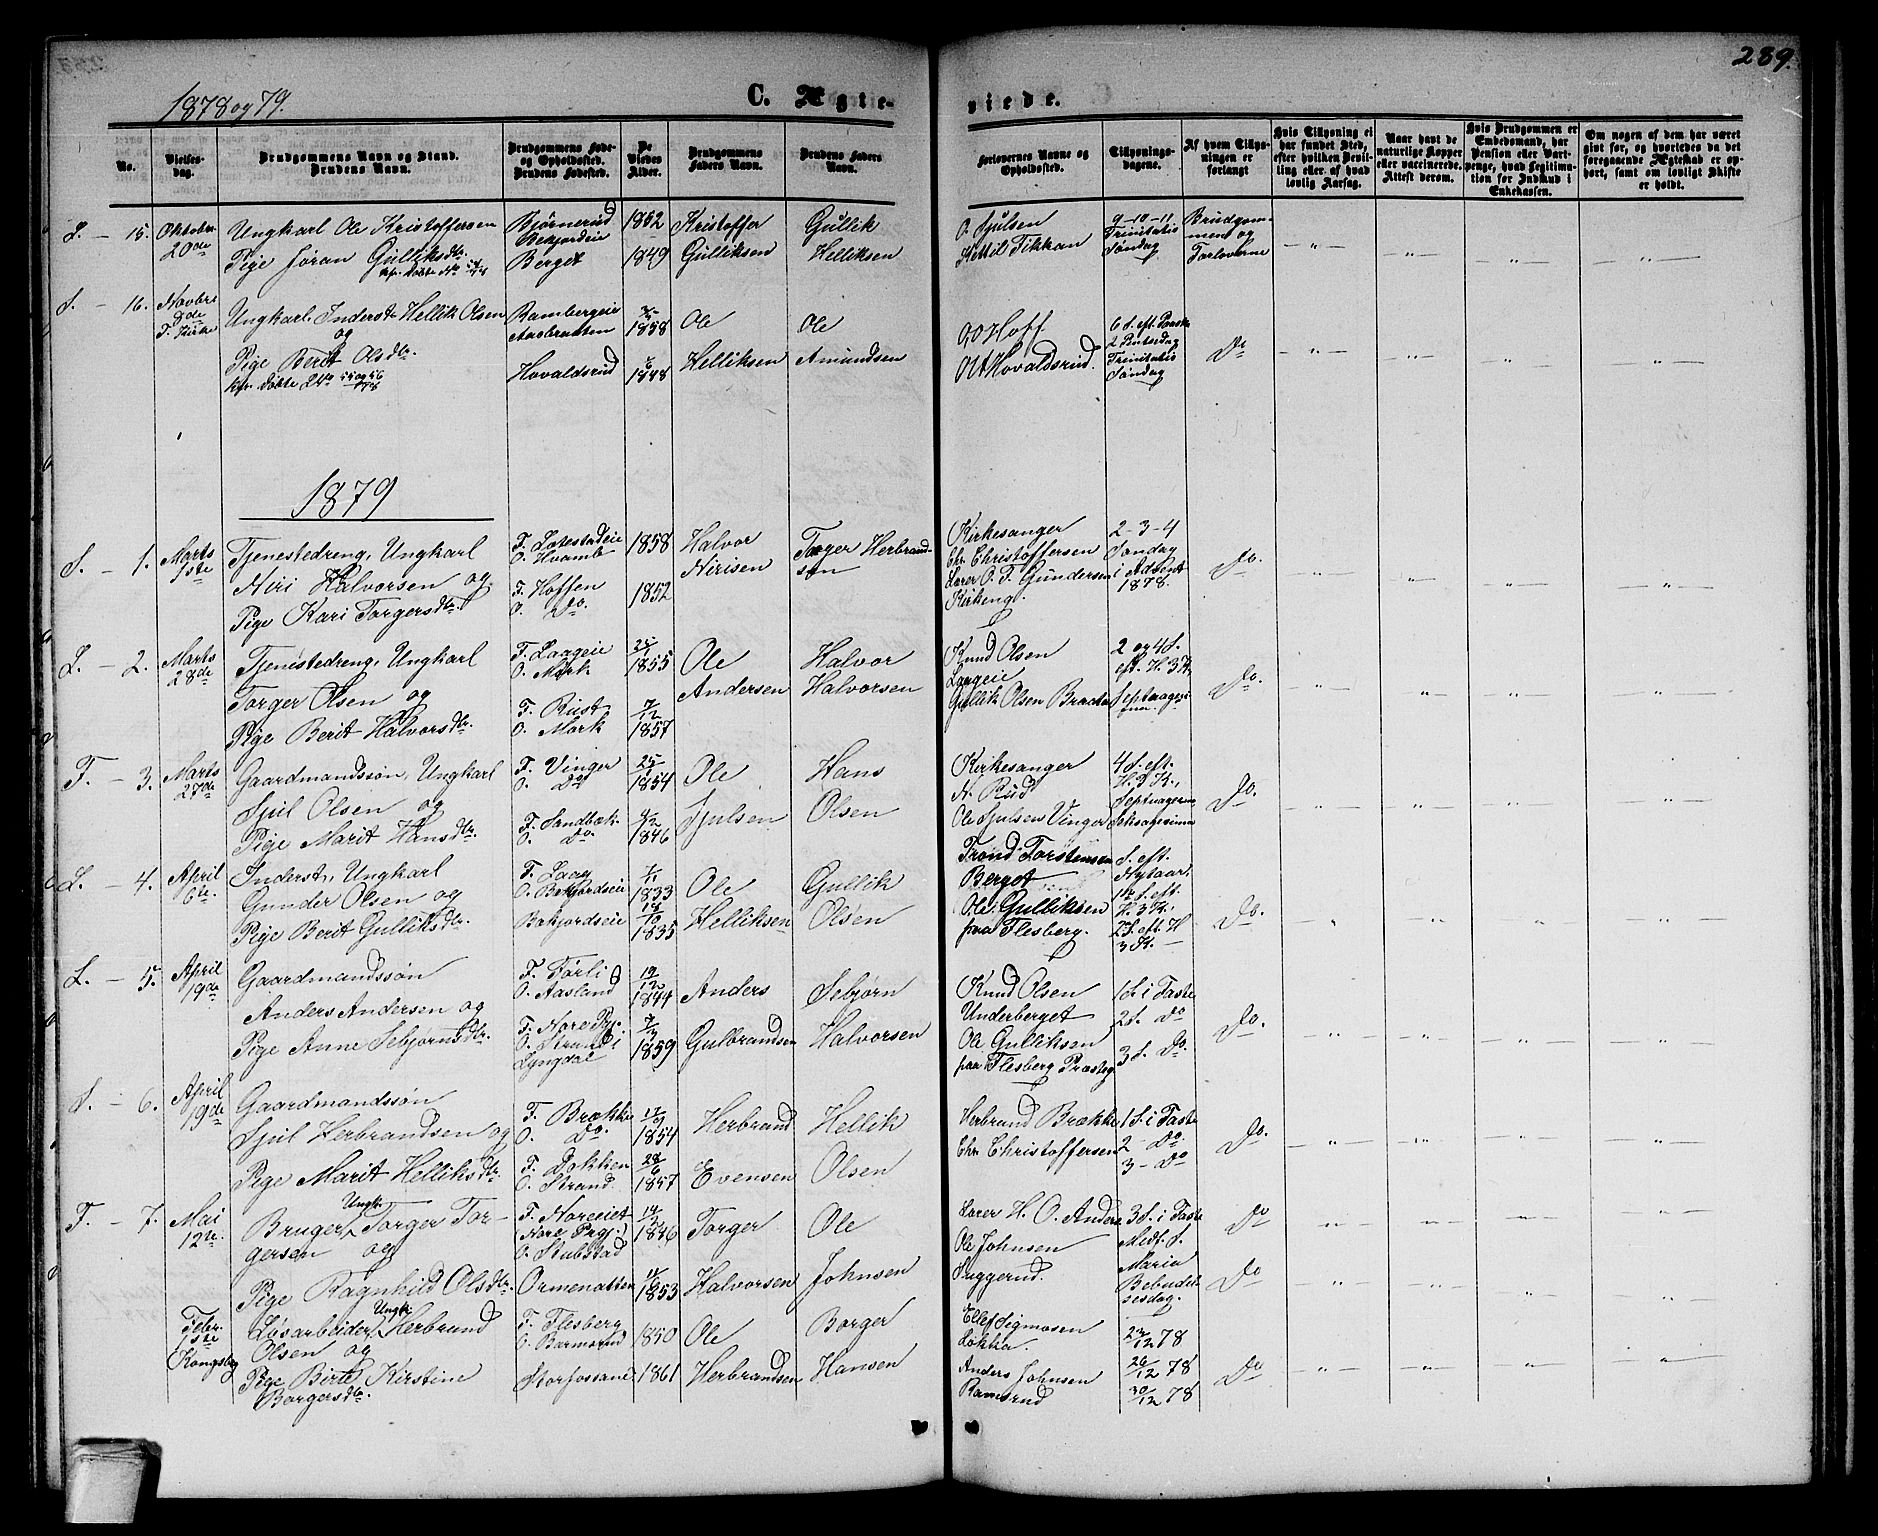 289.
1878 og 79.
C. Ægte-
viede.
No.
Vielses-
dag.
Brudgommens Navn og Stand.
Brudens Navn.
Brudgommens Føde-
og Opholdssted.
Brudens Fødested.
De
Viedes
Alder.
Brudgommens
Faders Navn.
Brudens Faders
Navn.
Forlovernes Navne og
Opholdssted.
Tillysnings-
dagene.
Af hvem Tillys-
ningen er
forlangt
Hvis Tillysning ei
har fundet Sted,
efter hvilken Bevil-
ling eller af hvad
lovlig Aarsag.
Naar havt de
naturlige Kopper
eller vaccinerede.
Attest derom.
Hvis Brudgommen er
Embedsmand, har
Pension eller Vart-
penge, hvad Legitima-
tion for Indskud i
Enkekassen.
Om nogen af dem har været
gift før, og hvorledes da det
foregaaende Ægteskab er op-
hørt, samt om lovligt Skifte
er holdt.
L. - 15. Oktober
20de
Ungkarl Ole Kristoffersen
Pige Jøran Gulliksdtr.
Bjørnerud
Bekjordeie
Berget
1852
1849
Kristoffer
Gulliksen
Gullik
Helliksen
O. Sjulsen
Kettil Tikkan
9-10-11
Trinitatis
Søndag
Brudgom-
men og
Forloverne
S. - 16. Novbr.
8de
F. Kirke
Ungkarl, Inderst Hellik Olsen
og
Pige Berit Olsdtr.
Bambergeie
Aasbraaten
Hovaldsrud
1858
1848
Ole
Helliksen
Ole
Amundsen
O, O Hoff
O H Hovaldsrud.
6 S. eft. Paaske
2 Pintsedag
Trinitatis
Søndag
Do
1879
S. - 1. Marts
1ste
Tjenestedreng, Ungkarl
Niri Halvorsen og
Pige Kari Torgersdtr.
O. Hvamb
F. Hoffen
O. Do.
1858
1852
Halvor
Nirisen
Torger Herbrand-
sen
Kirkesanger
Chr. Christoffersen
Lærer O. T. Gundersen
Kirkeng.
2-3-4
Søndag
i Advent
1878.
Do.
L. - 2. Marts
28de
Tjenestedreng, Ungkarl
Torger Olsen og
Pige Berit Halvorsdtr.
F. Laageie
O. Mørk
F. Rust
O. Mørk
25/1
1855
7/12
1857
Ole
Andersen
Halvor
Halvorsen
Knud Olsen
Laageie
Gullik Olsen Braata
2 og 4 S.
eft. H. 3 K,
Septuagesi
ma.
Do.
F. - 3. Marts
27de
Gaardmandssøn, Ungkarl
Sjul Olsen og
Pige Marit Hansdtr.
F. Vinger
O. Do
F. Sandbæk
O. Do.
1854
1846
Ole
Sjulsen
Hans
Olsen
Kirkesanger
N. Rud
Ole Sjulsen Vinger
4 S. eft.
H. 3 K.,
Septuagesima
Seksagesima
Do.
L. - 4. April
6te.
Inderst, Ungkarl
Gunder Olsen og
Pige Berit Gulliksdtr.
F. Laag
O. Bekjordseie
Bekjordseie
1833
1835
Ole
Helliksen
Gullik
Olsen
Trond Torstensen
Berget
Ole Gulliksen
paa Flesberg.
S. eft.
Nytaar,
1 S. eft.
H. 3 K.
2 S. eft. H
3 K.
Do.
L. - 5. April
19de
Gaardmandssøn
Anders Andersen og
Pige Anne Sebjørnsdtr.
F. Førli
O. Aasland
F. Nore Pgj.
O. Strand i
Lyngdal
19/12
1844
1859
Anders
Gulbrandsen
Sebjørn
Halvorsen
Knud Olsen
Underberget
Ole Gulliksen
paa Flesberg Præsteg
1 S. i Faste
2 S. Do
3 S. Do.
Do.
S. - 6. April
19de
Gaardmandssøn
Sjul Herbrandsen og
Pige Marit Helliksdtr.
F. Brække
O. Do.
F. Dokken
O. Strand.
1854
28/6
1857
Herbrand
Evensen
Hellik
Olsen
Herbrand Brække
Chr. Christoffersen
1 S. i Faste
2 - Do.
3 - Do
Do.
F. - 7. Mai
12te.
Bruger, Ungk. Torger Tor-
gersen og
Pige Ragnhild Olsdtr.
F. Noreeiet
(Nore Prgj.)
O. Stubstad
Ormenatten
1846
1853
Torger
Halvorsen
Ole
Johnsen
Lærer H. O. Anders
Ole Johnsen
Suggerud.
3 S. i Faste
Midf. S.
Maria
Bebudel-
sesdag.
Do
Do
Febr.
1ste
Kongsbg
Løsarbeider, Ungk. Herbrand
Olsen og
Pige Birte Kirstine
Borgersdtr.
F. Flesberg
Storfossane
1850
1861
Ole
Herbrandsen
Borger
Hansen
Ellef Sigmosen
Løkka.
Anders Johnsen
Ramsrud
22/12 78
26/12 78
30/12 78
Do